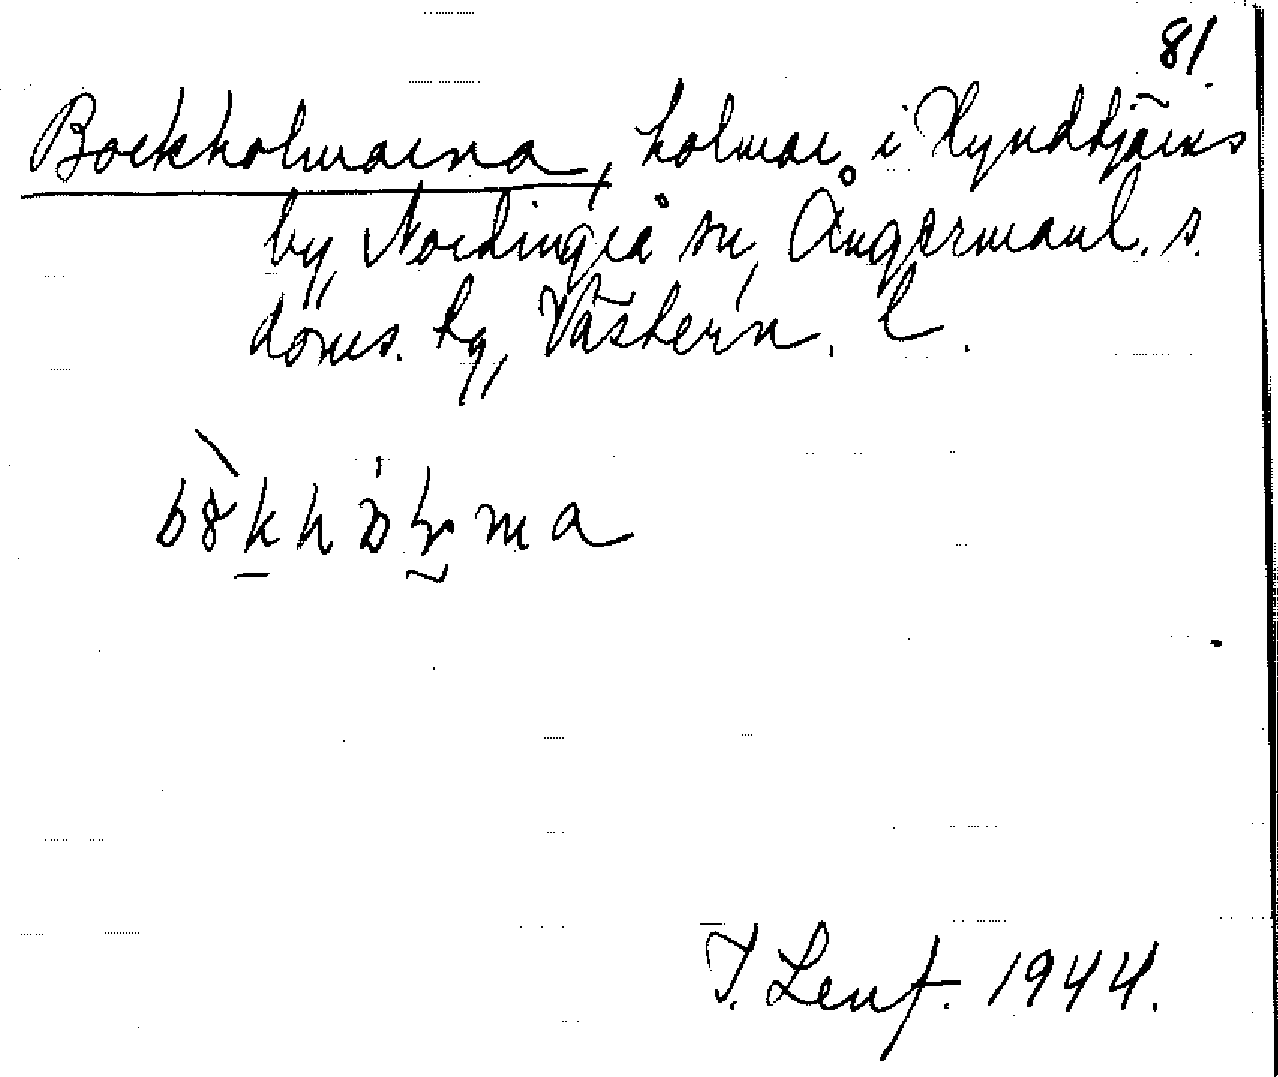 81.
Bockholmarna, holmar i Hyndtjärns
by, Nordingrå sn, Ångermanl. s.
doms. tg, Västern. l.
T. Lenf. 1944.